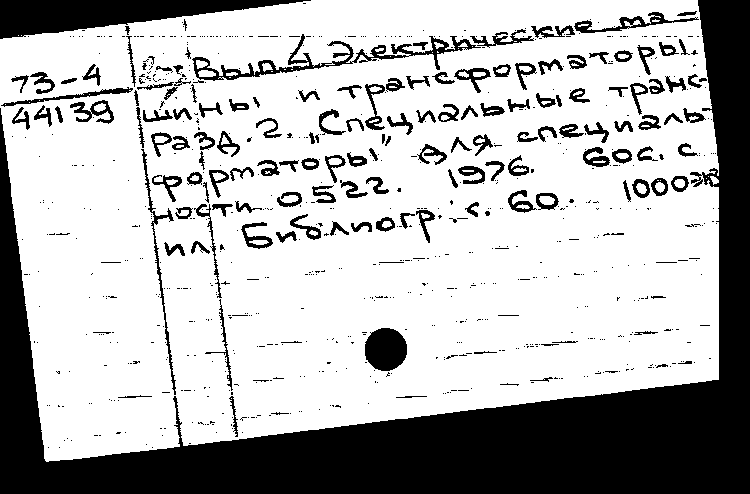 73-4
44139
Вып 4 Электрические ма-
шины и трансформаторы.
Разд. 2. "Специальные транс-
форматоры" для специаль-
ности 0522. 1976. 60с. с
ил. Библиогр.: с. 60. 1000 экз